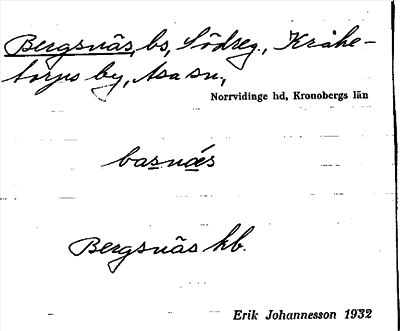 Bergsnäs, bs, Södreg., Kråke-
torps by, Asa sn,
Norrvidinge hd, Kronobergs län
basnä́s
Bergsnäs kb.
Erik Johannesson 1932